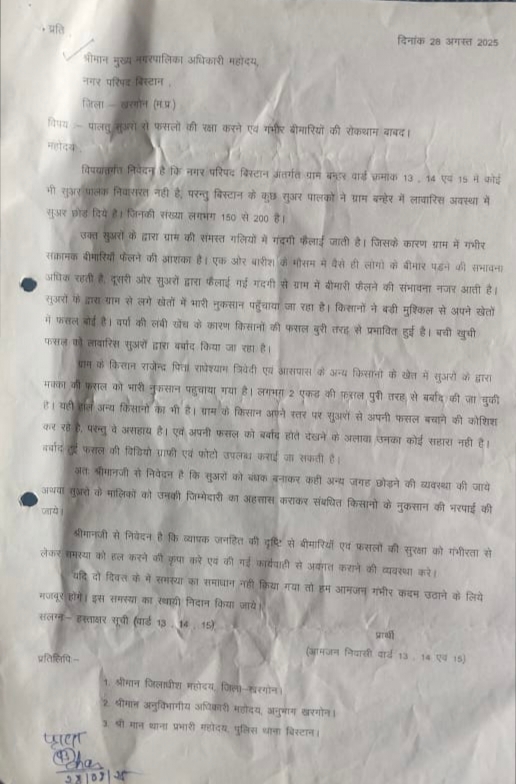 प्रति,
दिनांक 28 अगस्त 2025
श्रीमान मुख्य नगरपालिका अधिकारी महोदय,
नगर परिषद बिस्टान,
जिला – खरगोन (म.प्र.)
विषय :– पालतू सुअरों से फसलों की रक्षा करने एवं गंभीर बीमारियों की रोकथाम बाबद।
महोदय,
विषयांतर्गत निवेदन है कि नगर परिषद बिस्टान अंतर्गत ग्राम बन्हेर वार्ड क्रमांक 13, 14 एवं 15 में कोई
भी सुअर पालक निवासरत नही है, परन्तु बिस्टान के कुछ सुअर पालको ने ग्राम बन्हेर में लावारिस अवस्था में
सुअर छोड दिये है। जिनकी संख्या लगभग 150 से 200 है।
उक्त सुअरों के द्वारा ग्राम की समस्त गलियों में गंदगी फैलाई जाती है। जिसके कारण ग्राम में गंभीर
संक्रामक बीमारियाँ फैलने की आशंका है। एक ओर बारीश के मौसम में वैसे ही लोगों के बीमार पडने की संभावना
अधिक रहती है, दूसरी ओर सुअरों द्वारा फैलाई गई गंदगी से ग्राम में बीमारी फैलने की संभावना नजर आती है।
सुअरों के द्वारा ग्राम से लगे खेतों में भारी नुकसान पहुँचाया जा रहा है। किसानों ने बडी मुश्किल से अपने खेतों
में फसल बोई है। वर्षा की लंबी खेंच के कारण किसानों की फसल बुरी तरह से प्रभावित हुई है। बची खुची
फसल को लावारिस सुअरों द्वारा बर्बाद किया जा रहा है।
ग्राम के किसान राजेन्द्र पिता राधेश्याम त्रिवेदी एवं आसपास के अन्य किसानों के खेत में सुअरों के द्वारा
मक्का की फसल को भारी नुकसान पहुचाया गया है। लगभग 2 एकड की फसल पुरी तरह से बर्बाद की जा चुकी
है। यही हाल अन्य किसानों का भी है। ग्राम के किसान अपने स्तर पर सुअरों से अपनी फसल बचाने की कोशिश
कर रहे है, परन्तु वे असहाय है। एवं अपनी फसल को बर्बाद होते देखने के अलावा उनका कोई सहारा नही है।
बर्बाद हुई फसल की विडियो ग्राफी एवं फोटो उपलब्ध कराई जा सकती है।
अतः श्रीमानजी से निवेदन है कि सुअरों को बंधक बनाकर कही अन्य जगह छोडने की व्यवस्था की जाये
अथवा सुअरों के मालिकों को उनकी जिम्मेदारी का अहसास कराकर संबंधित किसानों के नुकसान की भरपाई की
जाये।
श्रीमानजी से निवेदन है कि व्यापक जनहित की दृष्टि से बीमारियों एवं फसलों की सुरक्षा को गंभीरता से
लेकर समस्या को हल करने की कृपा करे एवं की गई कार्यवाही से अवगत कराने की व्यवस्था करे।
यदि दो दिवस के में समस्या का समाधान नही किया गया तो हम आमजन गंभीर कदम उठाने के लिये
मजबूर होंगे। इस समस्या का स्थायी निदान किया जाये।
संलग्न– हस्ताक्षर सूची (वार्ड 13, 14, 15)
प्रार्थी
(आमजन निवासी वार्ड 13, 14 एवं 15)
प्रतिलिपि:–
1. श्रीमान जिलाधीश महोदय, जिला–खरगोन।
2. श्रीमान अनुविभागीय अधिकारी महोदय, अनुभाग खरगोन।
3. श्री मान थाना प्रभारी महोदय, पुलिस थाना बिस्टान।
28/08/25